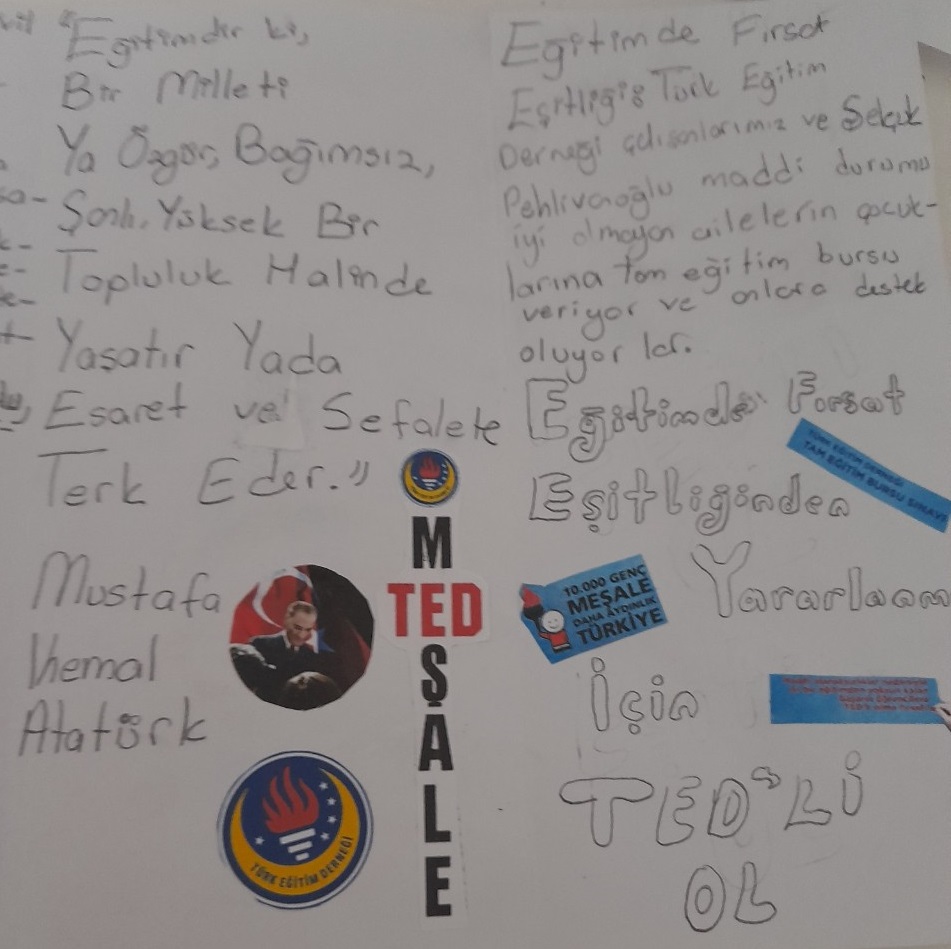 "Eğitimdir ki,
Bir Milleti
Ya Özgür, Bağımsız,
Şanlı, Yüksek Bir
Topluluk Halinde
Yaşatır Yada
Esaret ve Sefalete
Terk Eder."
Mustafa
Kemal
Atatürk
TÜRK EĞİTİM DERNEĞİ
M
TED
Ş
A
L
E
Eğitimde Fırsat
Eşitliği: Türk Eğitim
Derneği çalışanlarımız ve Selçuk
Pehlivanoğlu maddi durumu
iyi olmayan ailelerin çocuk-
larına tam eğitim bursu
veriyor ve onlara destek
oluyorlar.
Eğitimde Fırsat
Eşitliğinden
Yararlanm
İçin
TED'Lİ
OL
TÜRK EĞİTİM DERNEĞİ
TAM EĞİTİM BURSU SINAVI
10.000 GENÇ
MEŞALE
DAHA AYDINLIK
TÜRKİYE